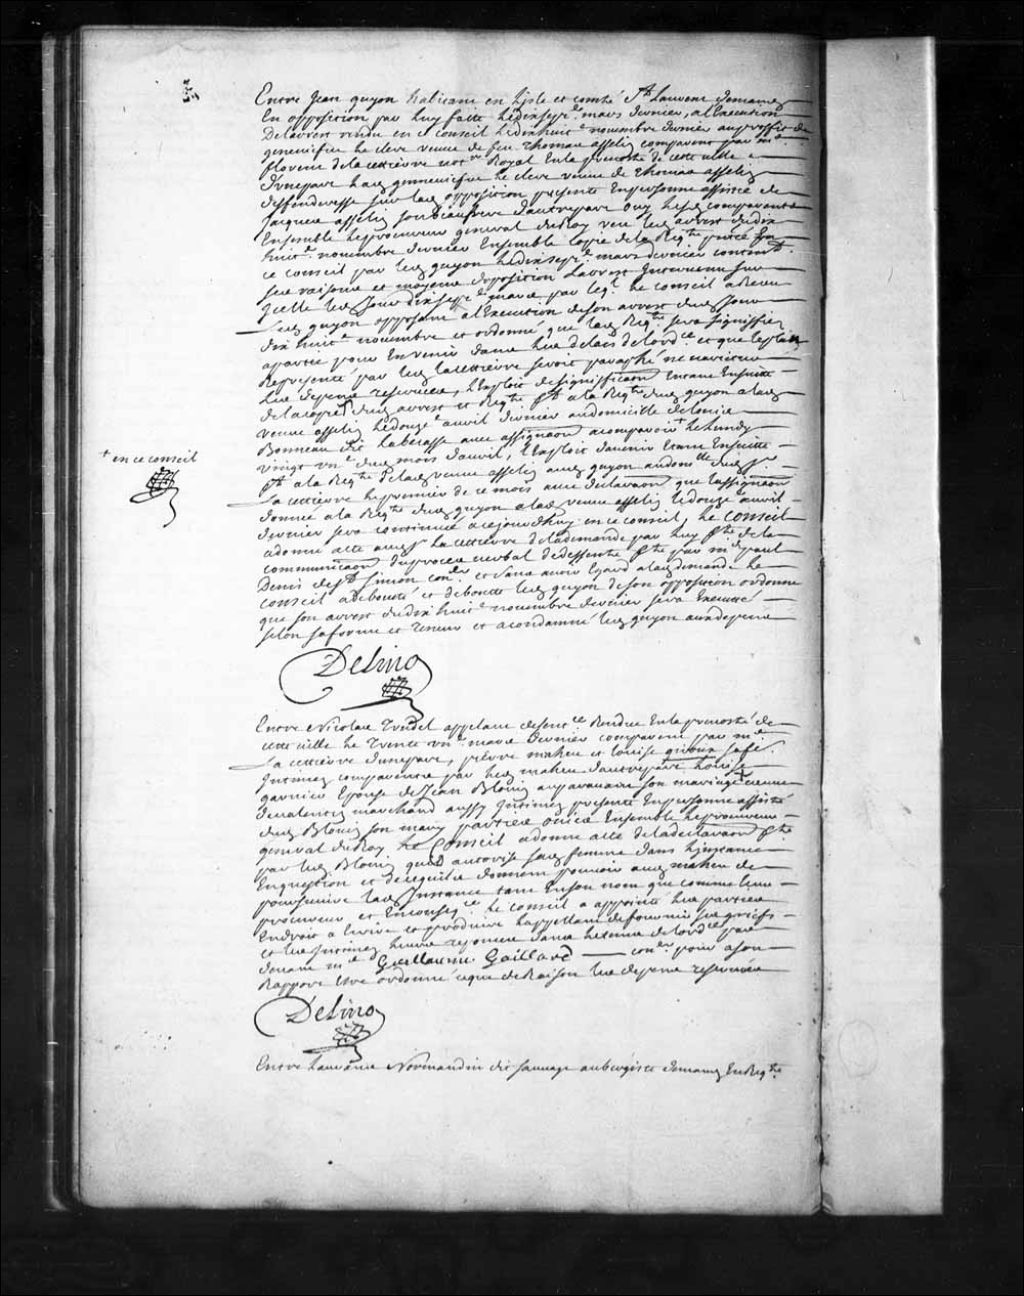 Entre Jean guyon habitant en Lisle et comté St Laurent demandr
En opposition par luy faitte le dixsept.e mars dernier, a l'Execution
De larrest rendu en ce conseil le dixhuit.e novembre dernier au proffit de
geneviefve le clerc veuve de feu Thomas asselin comparant par me.
florent de la cettierre not.re Royal En la prevosté de cette ville
D'unepart Lad. gennevieve le clerc veuve de thomas asselin
deffenderesse sur lad. opposition presente Enpersonne assistée de
Jacques asselin son beaufrere dautrepart ouy lesd. comparants
Ensemble le procureur general du Roy veu led. arrest du dix
huit.e novembre dernier Ensemble copie de la Reqte
ce conseil par led. guyon le dixsept.e mars dernier contenant
ses raisons et moyens d'opposition Larrest Intervenu sur
Icelle led. Jour dixsept.e mars par leql. le conseil a Receu
Led. guyon opposant a l'Execution de son arrest dud. Jour
dix huit.e novembre et ordonné que lad. Reqte. sera signiffiée
apartie pour En venir dans les delais de lordce et que
Representé par led. lacettierre seroit paraphé ne varietur
les depens reservez, l'Exploit de signiffication Estant Ensuitte
de la copie dud. arrest et Reqte ft a la Reqte dud. guyon a lad.
veuve asselin le douze.e avril dernier au domicille de louis
Bonneau dit la becasse avec assignaon a comparoir le lundy
vingt un.e dud. mois d'avril, l'Exploit davenir Estant Ensuitte
ft a la Reqte de lad. veuve asselin aud. guyon au dom.lle dud. Sr
La cettierre le premier de ce mois avec declaraon que l'assignaon
donnée a la Reqte dud. guyon a lad. veuve asselin le douze.e avril
dernier sera continuée a cejourdhuy en ce conseil, le Conseil
a donné acte aud. Sr la cettierre de la demande par luy fte de la
communicaon du procez verbal de descente fte par me paul
Denis de St Simon coner. et sans avoir Egard a lad. demande le
conseil a debouté et deboutte led. guyon de son opposition ordonne
que son arrest du dix huit.e novembre dernier sera Executé
selon sa forme et teneur et a condamné led. guyon aux depens
+ en ce conseil
Delino
Entre Nicolas Trudel appelant de sent.ce Rendue En la prevosté de
cette ville le trente un.e mars dernier comparant par me
La cettierre d'unepart, pierre maheu et louise
Intimez comparents par led. maheu dautrepart Louise
garnier Epouse de Jean Blouin auparavant son mariage veuve
marchand aussy Intimez presente Enpersonne assistée
dud. Blouin son mary parties ouies Ensemble le procureur
general du Roy le Conseil a donné acte de la declaraon fte
par led. Blouin quil autorise sad. femme dans l'instance
En question et de ce quils donnent pouvoir aud. maheu de
poursuivre lad. Instance tant En son nom que comme leur
procureur et En conseq.ce le conseil a appointé les parties
En droit a Ecrire et produire l'appellant de fournir ses griefs
et les Intimez leurs reponses dans le temps de lordce par
devant me Guillaume Gaillard coner pour a son
Rapport Estre ordonné ce que de Raison les depens reservez
Delino
Entre Laurent Normandin dit sauvage aubergiste demandr En Reqte